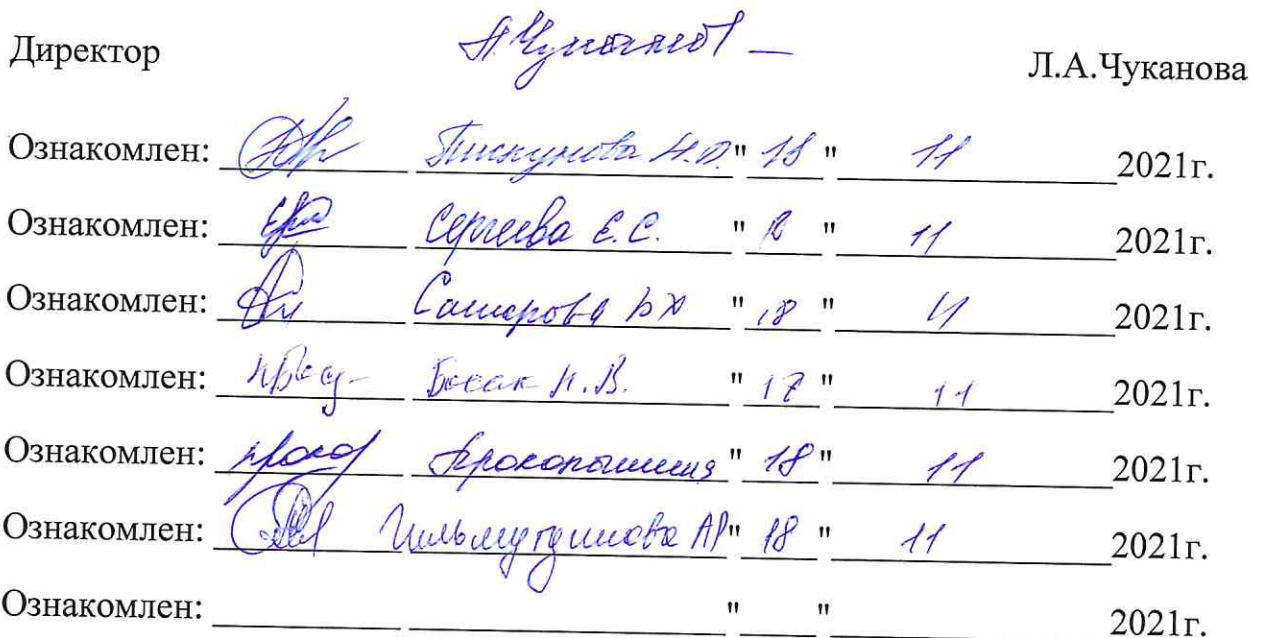 Директор Л.А.Чуканова
Ознакомлен: Пискунова Н.О. "18" 11 2021г.
Ознакомлен: Сергеева Е.С. " " 11 2021г.
Ознакомлен: "18" 11 2021г.
Ознакомлен: Босак Н.В. "17" 11 2021г.
Ознакомлен: "18" 11 2021г.
Ознакомлен: Гильмутдинова АР "18" 11 2021г.
Ознакомлен: " " 2021г.